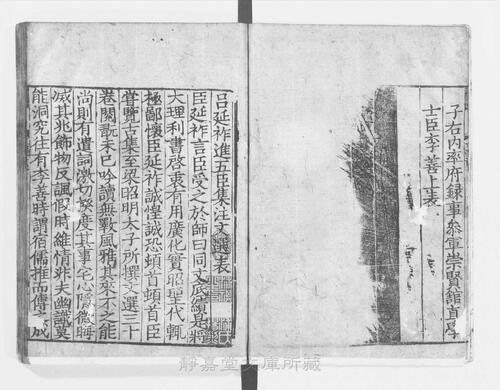 子右內率府録事叅軍崇賢館直學
士臣李善上表
呂延祚進五臣集注文選表
臣延祚言臣受之於師曰同文底績是將
大理刋書啓衷有用廣化實昭聖代輙
極鄙懷臣延祚誠惶誠恐頓首頓首臣
甞覽古集至梁昭明太子所撰文選三十
卷閱翫未已吟讀無斁風雅其來不之能
尚則有遣詞激切揆度其事宅心隱微晦
滅其兆飾物反諷假時維情非夫幽識莫
能洞究往有李善時謂宿儒推而傳之成
靜嘉堂文庫所藏